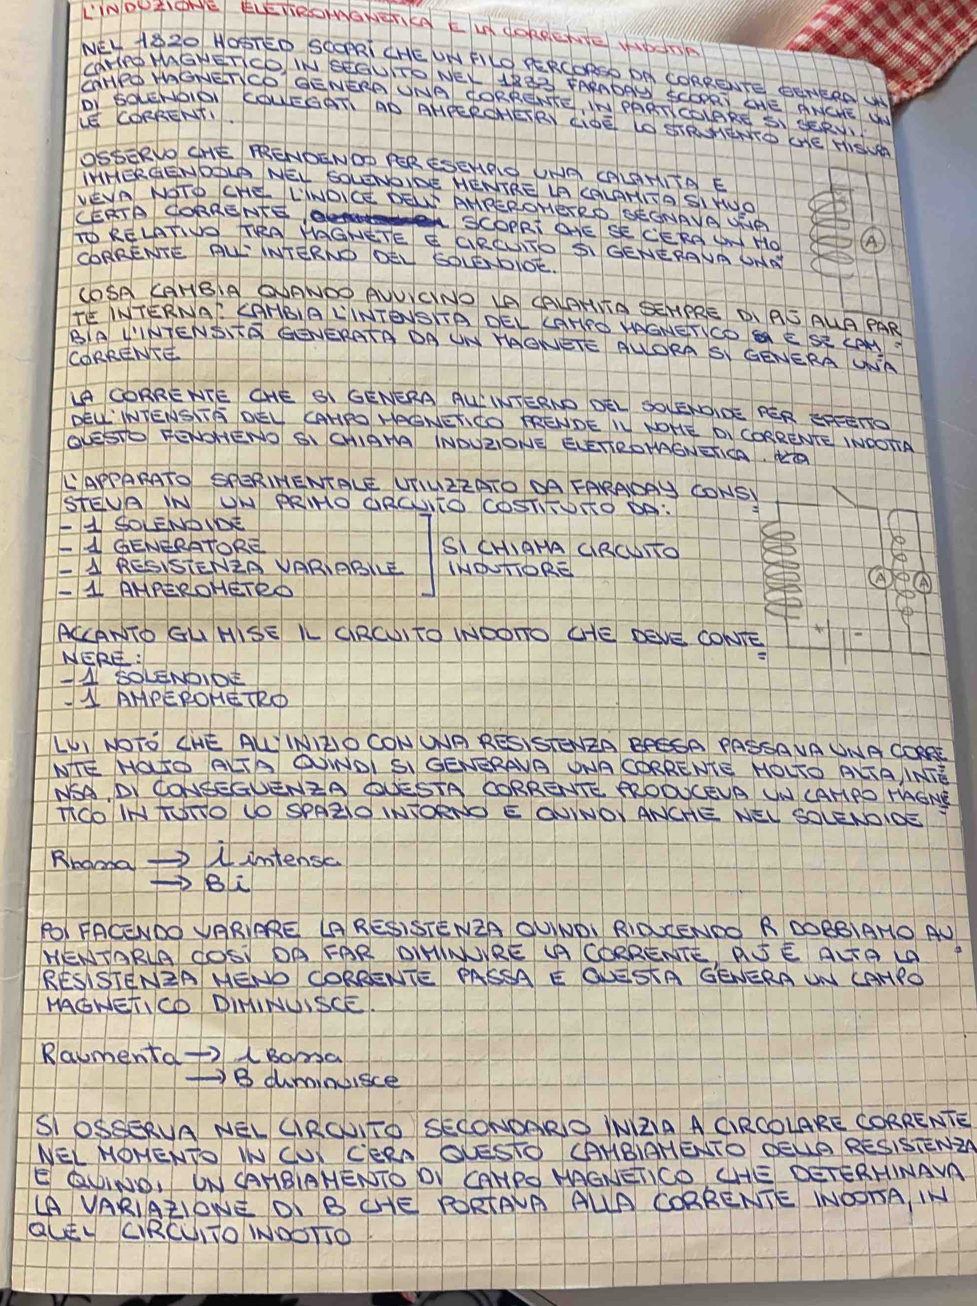 L'INDUZIONE ELETTROMAGNETICA E LA CORRENTE INDOTTA
NEL 1820 HOSTED SCOPRÌ CHE UN FILO PERCORSO DA CORRENTE GENERA UN
CAMPO MAGNETICO, IN SEGUITO NEL FARADAY SCOPRÌ CHE ANCHE UN
CAMPO MAGNETICO GENERA UNA CORRENTE, IN PARTICOLARE SI SERVÌ
DI SOLENOIDI COLLEGATI AD AMPEROMETRI CIOÈ LO STRUMENTO CHE MISURA
LE CORRENTI.
OSSERVO CHE PRENDENDO PER ESEMPIO UNA CALAMITA E
IMMERGENDOLA NEL SOLENOIDE MENTRE LA CALAMITA SI MUO
VEVA NOTO CHE L'INDICE DELL' AMPEROMETRO SEGNAVA UNA
CERTA CORRENTE, SCOPRÌ CHE SE C'ERA UN MO
TO RELATIVO TRA MAGNETE E CIRCUITO SI GENERAVA UNA
CORRENTE ALL' INTERNO DEL SOLENOIDE.
A
COSA CAMBIA QUANDO AVVICINO LA CALAMITA SEMPRE DI PIÙ ALLA PAR
TE INTERNA? CAMBIA L'INTENSITÀ DEL CAMPO MAGNETICO E SE CAM=
BIA L'INTENSITÀ GENERATA DA UN MAGNETE ALLORA SI GENERA UNA
CORRENTE
LA CORRENTE CHE SI GENERA ALL'INTERNO DEL SOLENOIDE PER EFFETTO
DELL'INTENSITÀ DEL CAMPO MAGNETICO PRENDE IL NOME DI CORRENTE INDOTTA
QUESTO FENOMENO SI CHIAMA INDUZIONE ELETTROMAGNETICA.
L'APPARATO SPERIMENTALE UTILIZZATO DA FARADAY CONSI=
STEVA IN UN PRIMO CIRCUITO COSTITUITO DA:
- 1 SOLENOIDE
- 1 GENERATORE
- 1 RESISTENZA VARIABILE
- 1 AMPEROMETRO
SI CHIAMA CIRCUITO
INDUTTORE
A A
+ -
ACCANTO GLI MISE IL CIRCUITO INDOTTO CHE DEVE CONTE=
NERE:
- 1 SOLENOIDE
- 1 AMPEROMETRO
LUI NOTÒ CHE ALL'INIZIO CON UNA RESISTENZA BASSA PASSAVA UNA CORRE
NTE MOLTO ALTA QUINDI SI GENERAVA UNA CORRENTE MOLTO ALTA, INTE
NSA. DI CONSEGUENZA QUESTA CORRENTE PRODUCEVA UN CAMPO MAGNE=
TICO IN TUTTO LO SPAZIO INTORNO E QUINDI ANCHE NEL SOLENOIDE
Rbassa → i intensa
→ Bi
POI FACENDO VARIARE LA RESISTENZA QUINDI RIDUCENDO R DOBBIAMO AU=
MENTARLA COSÌ DA FAR DIMINUIRE LA CORRENTE, PIÙ È ALTA LA
RESISTENZA MENO CORRENTE PASSA E QUESTA GENERA UN CAMPO
MAGNETICO DIMINUISCE.
Raumenta → i Bassa
→ B diminuisce
SI OSSERVA NEL CIRCUITO SECONDARIO INIZIA A CIRCOLARE CORRENTE
NEL MOMENTO IN CUI C'ERA QUESTO CAMBIAMENTO DELLA RESISTENZA
E QUINDI UN CAMBIAMENTO DI CAMPO MAGNETICO CHE DETERMINAVA
LA VARIAZIONE DI B CHE PORTAVA ALLA CORRENTE INDOTTA, IN
QUEL CIRCUITO INDOTTO